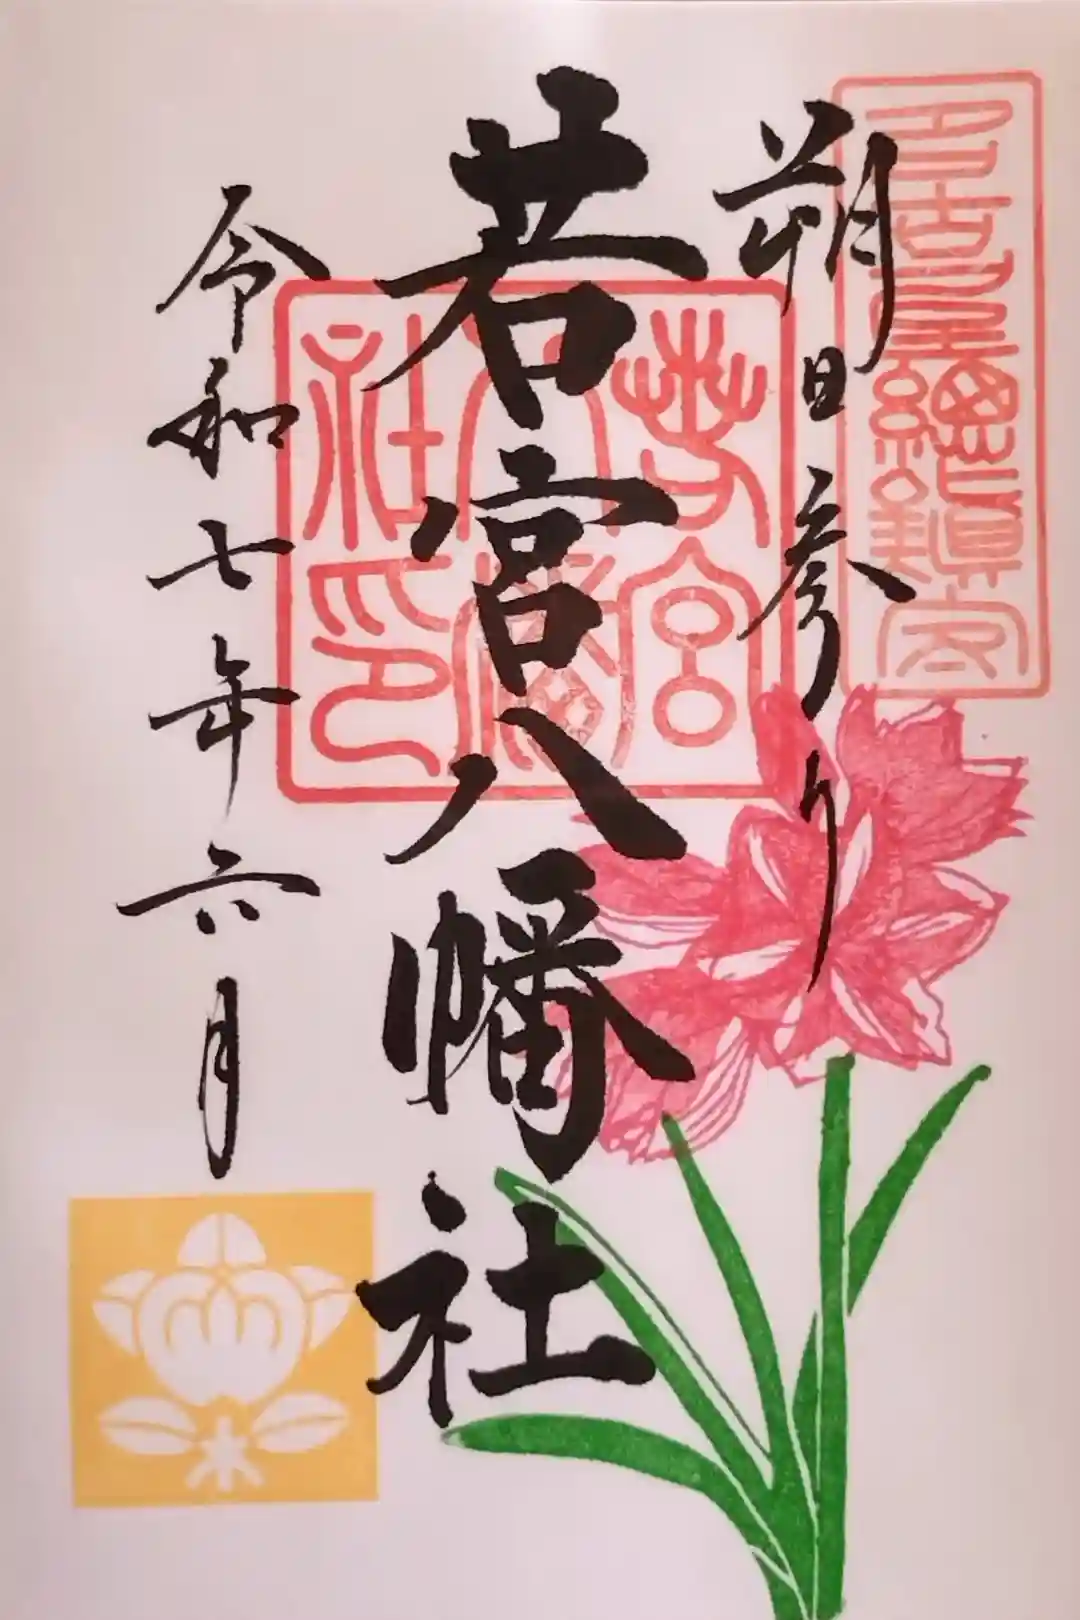 名古屋總鎮守
朔日参り
若宮八幡社
若宮
八幡
社印
令和七年六月